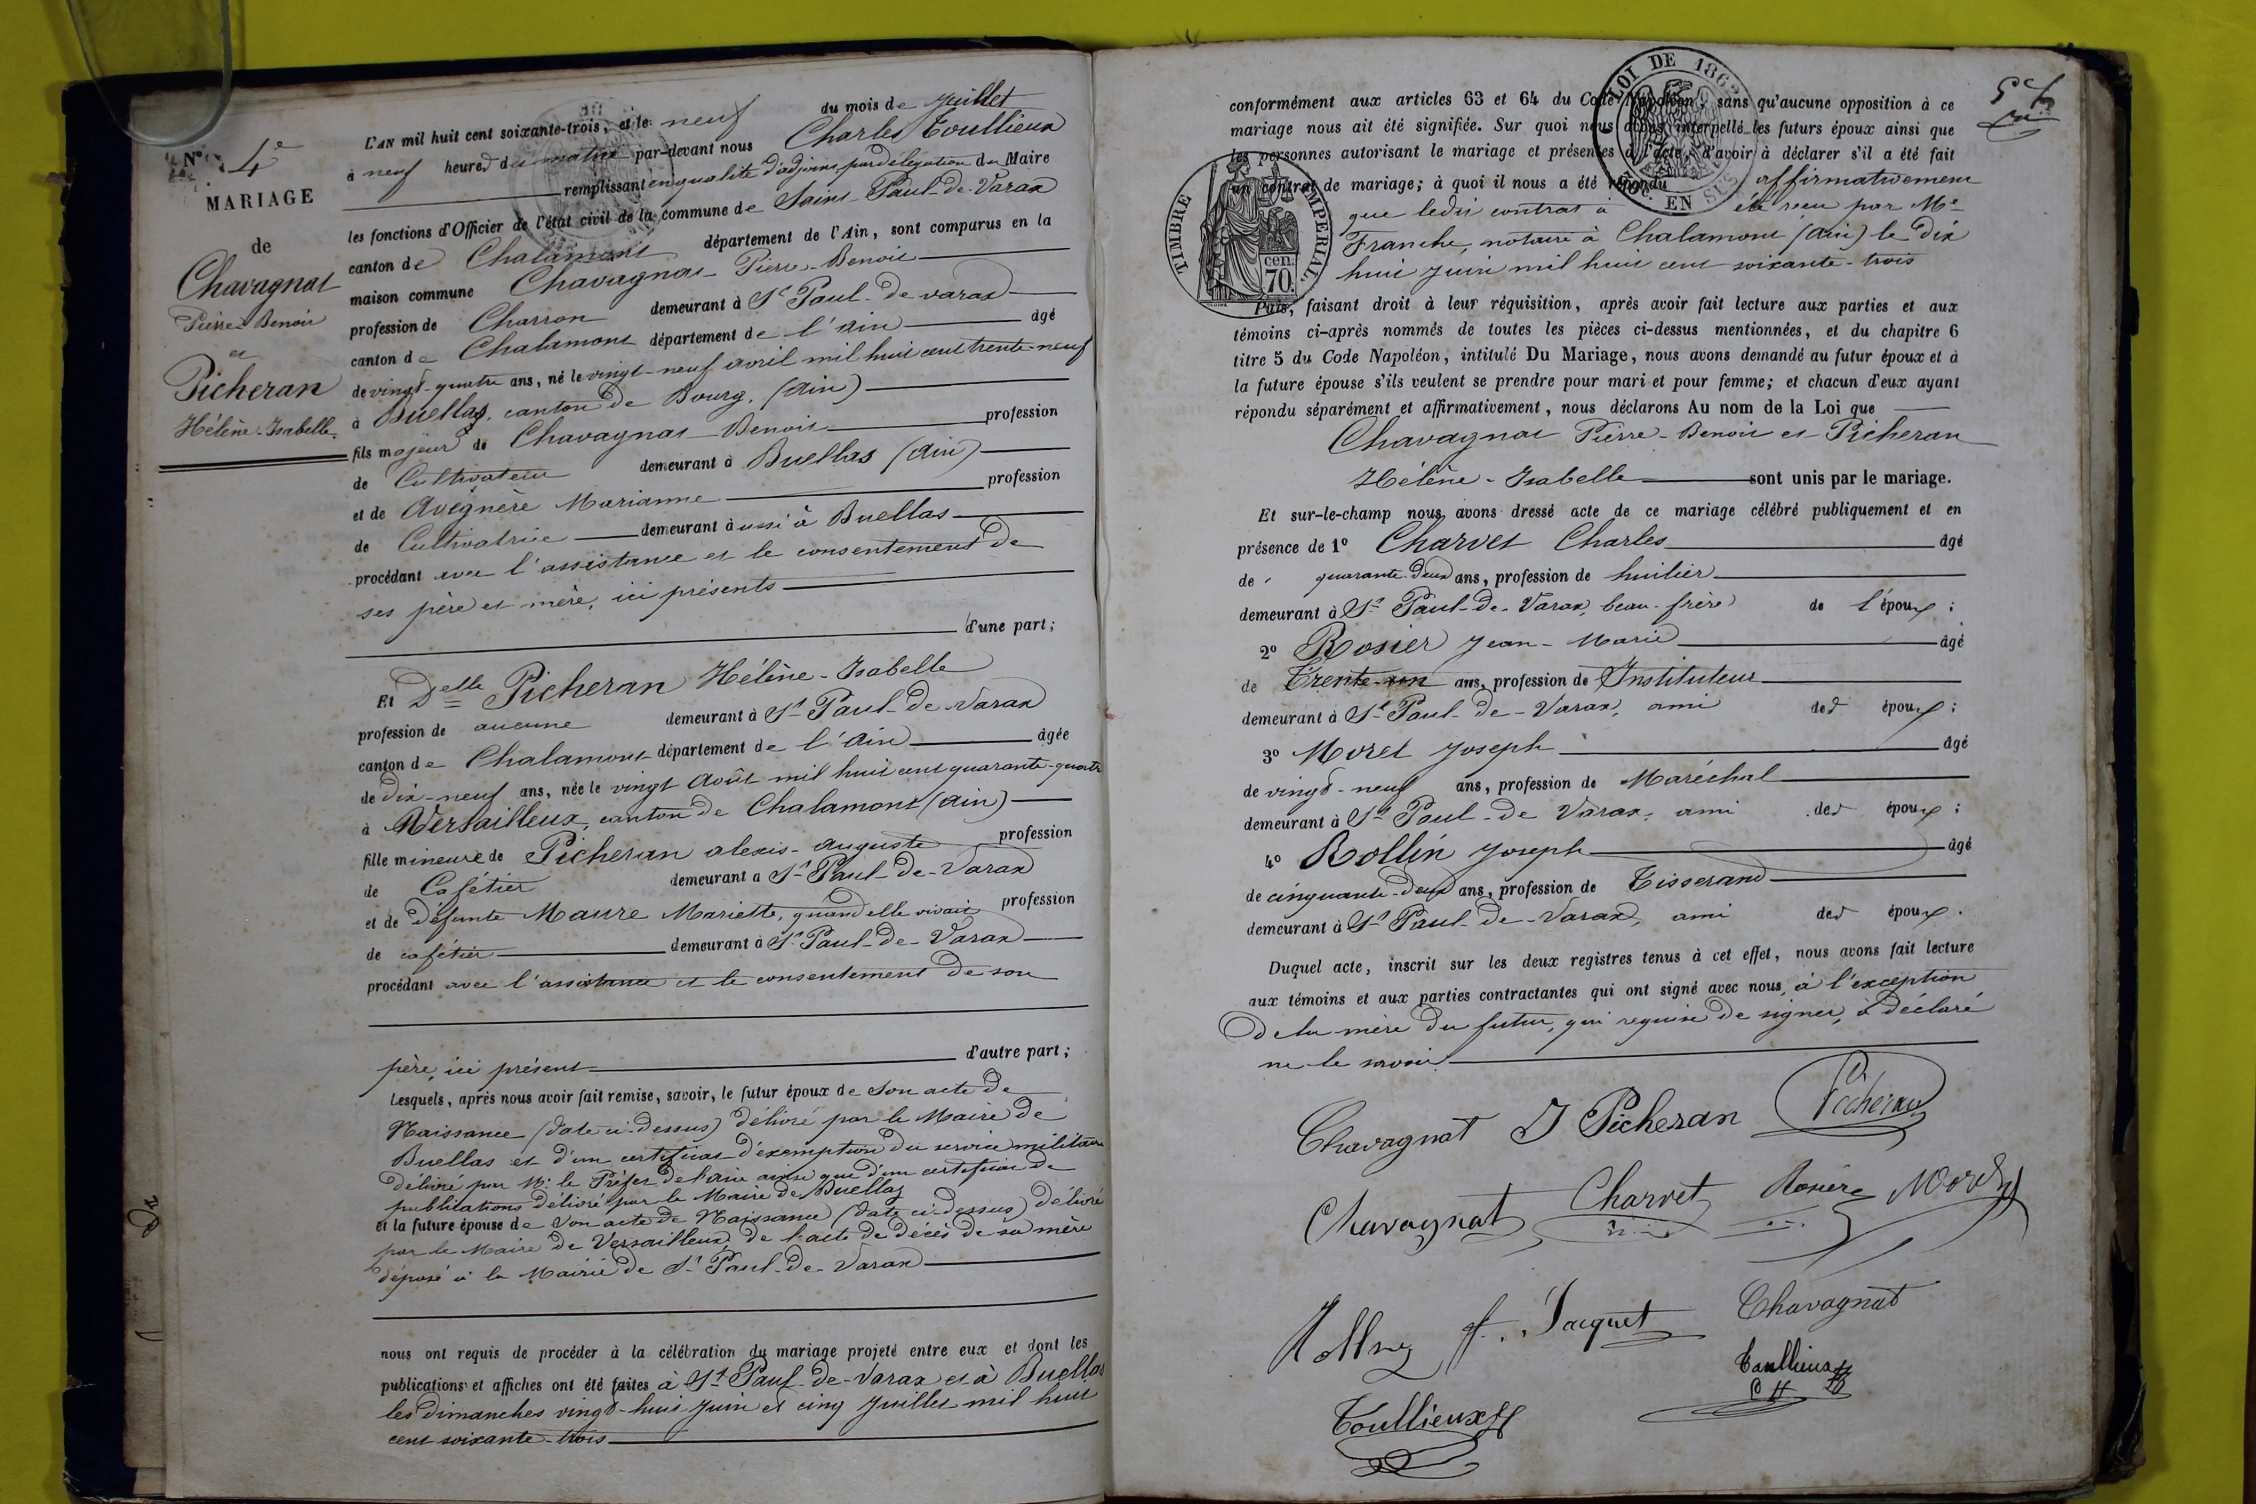 N° 4e
MARIAGE
de
Chavagnat
Pierre-Benoit
et
Picheran
Hélène-Isabelle.
L'AN mil huit cent soixante-trois, et le neuf du mois de Juillet
à neuf heures du matin par-devant nous Charles Toullieux
remplissant en qualité d'adjoint par délégation du Maire
les fonctions d'Officier de l'état civil de la commune de Saint-Paul-de-Varax
canton de Chalamont département de l'Ain, sont comparus en la
maison commune Chavagnat Pierre-Benoit
profession de Charron demeurant à St Paul-de-varax
canton de Chalamont département de l'Ain âgé
de vingt-quatre ans, né le vingt-neuf avril mil huit cent trente-neuf
à Buellas, canton de Bourg, (Ain)
fils majeur de Chavagnat Benoit profession
de Cultivateur demeurant à Buellas (Ain)
et de Avégnère Marianne profession
de Cultivatrice demeurant aussi à Buellas
procédant avec l'assistance et le consentement de
ses père et mère, ici présents
d'une part;
Et Delle Picheran Hélène-Isabelle
profession de aucune demeurant à St Paul-de-Varax
canton de Chalamont département de l'Ain âgée
de dix-neuf ans, née le vingt Août mil huit cent quarante-quatre
à Versailleux, canton de Chalamont (Ain)
fille mineure de Picheran alexis-auguste profession
de Cafétier demeurant a St Paul-de-Varax
et de défunte Maure Mariette, quand elle vivait profession
de cafétier demeurant à St Paul-de-Varax
procédant avec l'assistance et le consentement de son
père, ici présent d'autre part;
Lesquels, après nous avoir fait remise, savoir, le futur époux de son acte de
Naissance (date ci-dessus) délivré par le Maire de
Buellas et d'un certificat d'exemption du service militaire
délivré par Mr le Préfet de l'Ain ainsi que d'un certificat de
publications délivré par le Maire de Buellas
et la future épouse de son acte de Naissance (date ci-dessus) délivré
par le Maire de Versailleux, de l'acte de décès de sa mère
déposé à la Mairie de St Paul-de-Varax
nous ont requis de procéder à la célébration du mariage projeté entre eux et dont les
publications et affiches ont été faites à St Paul-de-Varax et à Buellas
les dimanches vingt-huit Juin et cinq Juillet mil huit
cent soixante-trois
LOI DE 1862
EN SUS
TIMBRE IMPERIAL
70 cen.
conformément aux articles 63 et 64 du Code Napoléon, sans qu'aucune opposition à ce
mariage nous ait été signifiée. Sur quoi nous avons interpellé les futurs époux ainsi que
les personnes autorisant le mariage et présentes à l'acte, d'avoir à déclarer s'il a été fait
un contrat de mariage; à quoi il nous a été répondu affirmativement
que ledit contrat a été reçu par Me
Franche, notaire à Chalamont (Ain) le dix
huit juin mil huit cent soixante-trois
Puis, faisant droit à leur réquisition, après avoir fait lecture aux parties et aux
témoins ci-après nommés de toutes les pièces ci-dessus mentionnées, et du chapitre 6
titre 5 du Code Napoléon, intitulé Du Mariage, nous avons demandé au futur époux et à
la future épouse s'ils veulent se prendre pour mari et pour femme; et chacun d'eux ayant
répondu séparément et affirmativement, nous déclarons Au nom de la Loi que
Chavagnat Pierre-Benoit et Picheran
Hélène-Isabelle sont unis par le mariage.
Et sur-le-champ nous avons dressé acte de ce mariage célébré publiquement et en
présence de 1° Charvet Charles âgé
de quarante-deux ans, profession de huilier
demeurant à St Paul-de-Varax, beau-frère de l'époux;
2° Rosier Jean-Marie âgé
de Trente-un ans, profession de Instituteur
demeurant à St Paul-de-Varax, ami des époux;
3° Morel Joseph âgé
de vingt-neuf ans, profession de Maréchal
demeurant à St Paul-de-Varax, ami des époux;
4° Rollin Joseph âgé
de cinquante-deux ans, profession de Tisserand
demeurant à St Paul-de-Varax, ami des époux.
Duquel acte, inscrit sur les deux registres tenus à cet effet, nous avons fait lecture
aux témoins et aux parties contractantes qui ont signé avec nous, à l'exception
de la mère du futur, qui requise de signer, a déclaré
ne le savoir.
Chavagnat I Picheran Picheran
Chavagnat Charvet Rosier Morel
f. Jacquet Chavagnat
Toullieux
Toullieux